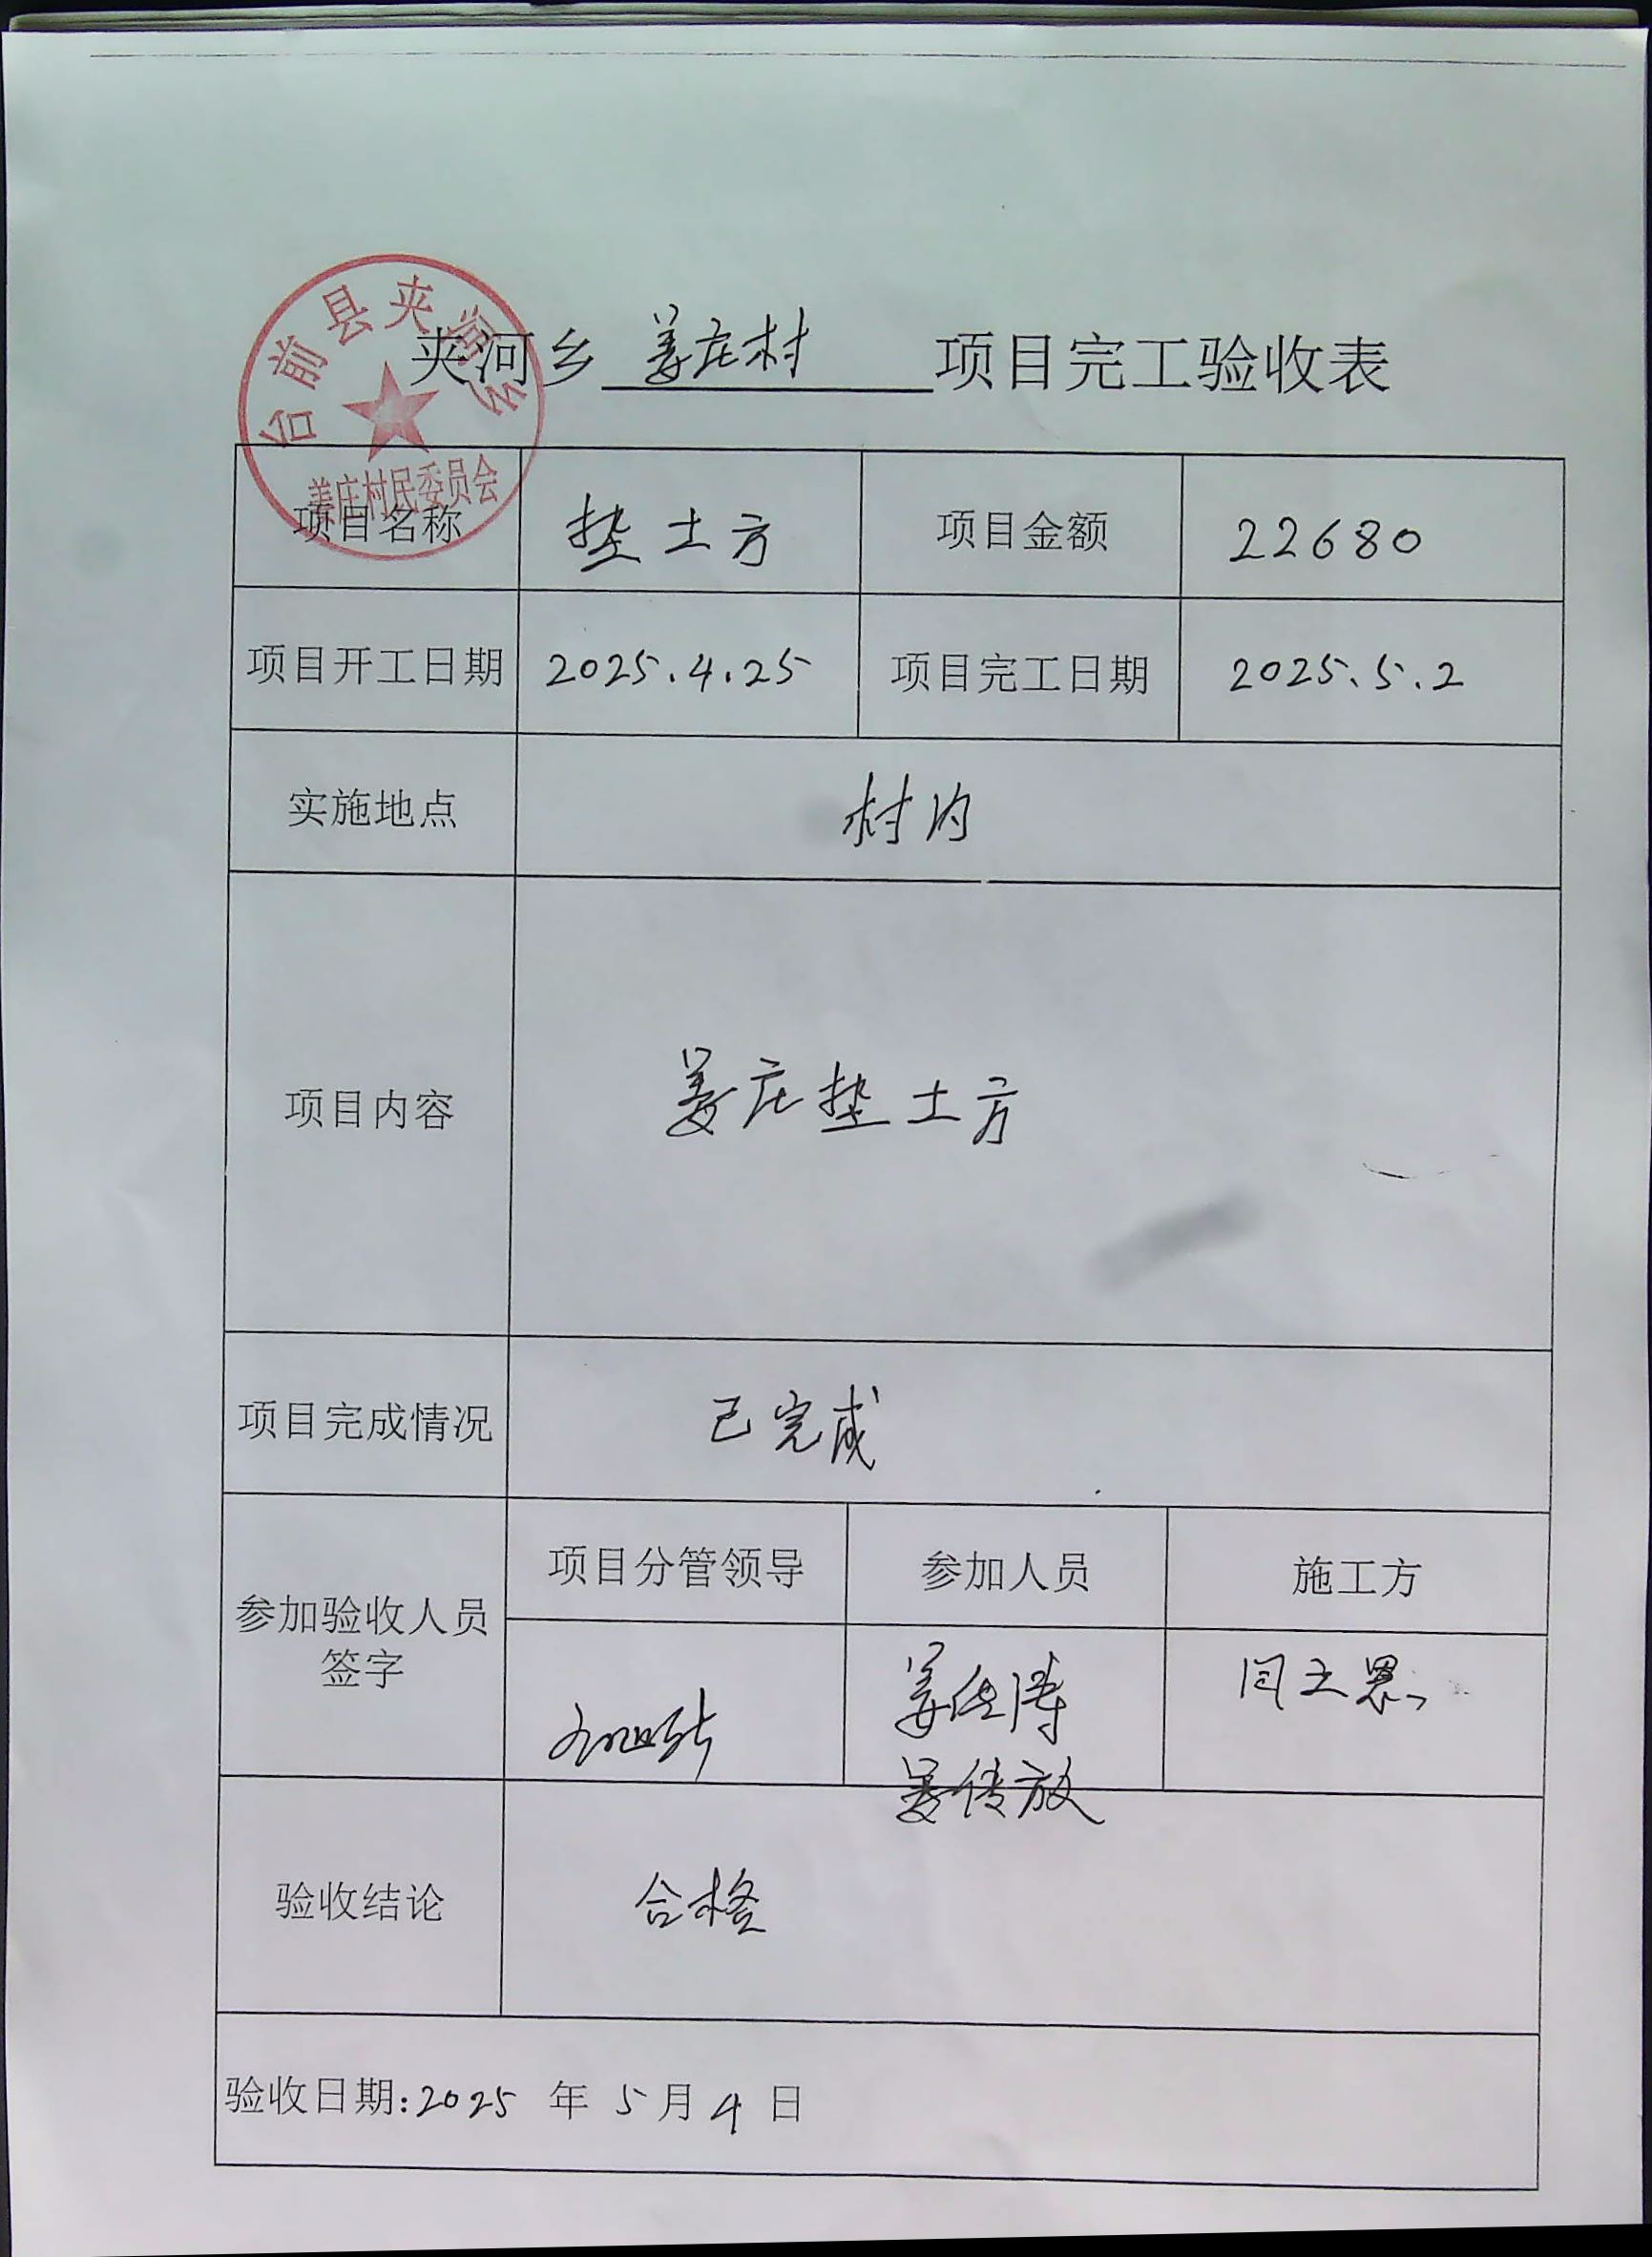 台前县夹河乡
姜庄村民委员会
夹河乡 姜庄村 项目完工验收表
项目名称 垫土方 项目金额 22680
项目开工日期 2025.4.25 项目完工日期 2025.5.2
实施地点 村内
项目内容 姜庄垫土方
项目完成情况 已完成
项目分管领导 参加人员 施工方
参加验收人员
签字
姜传涛
姜传放
验收结论 合格
验收日期:2025 年 5 月 4 日